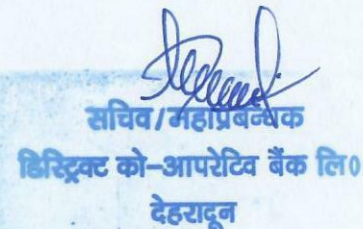 सचिव/महाप्रबन्धक
डिस्ट्रिक्ट को-आपरेटिव बैंक लि0
देहरादून